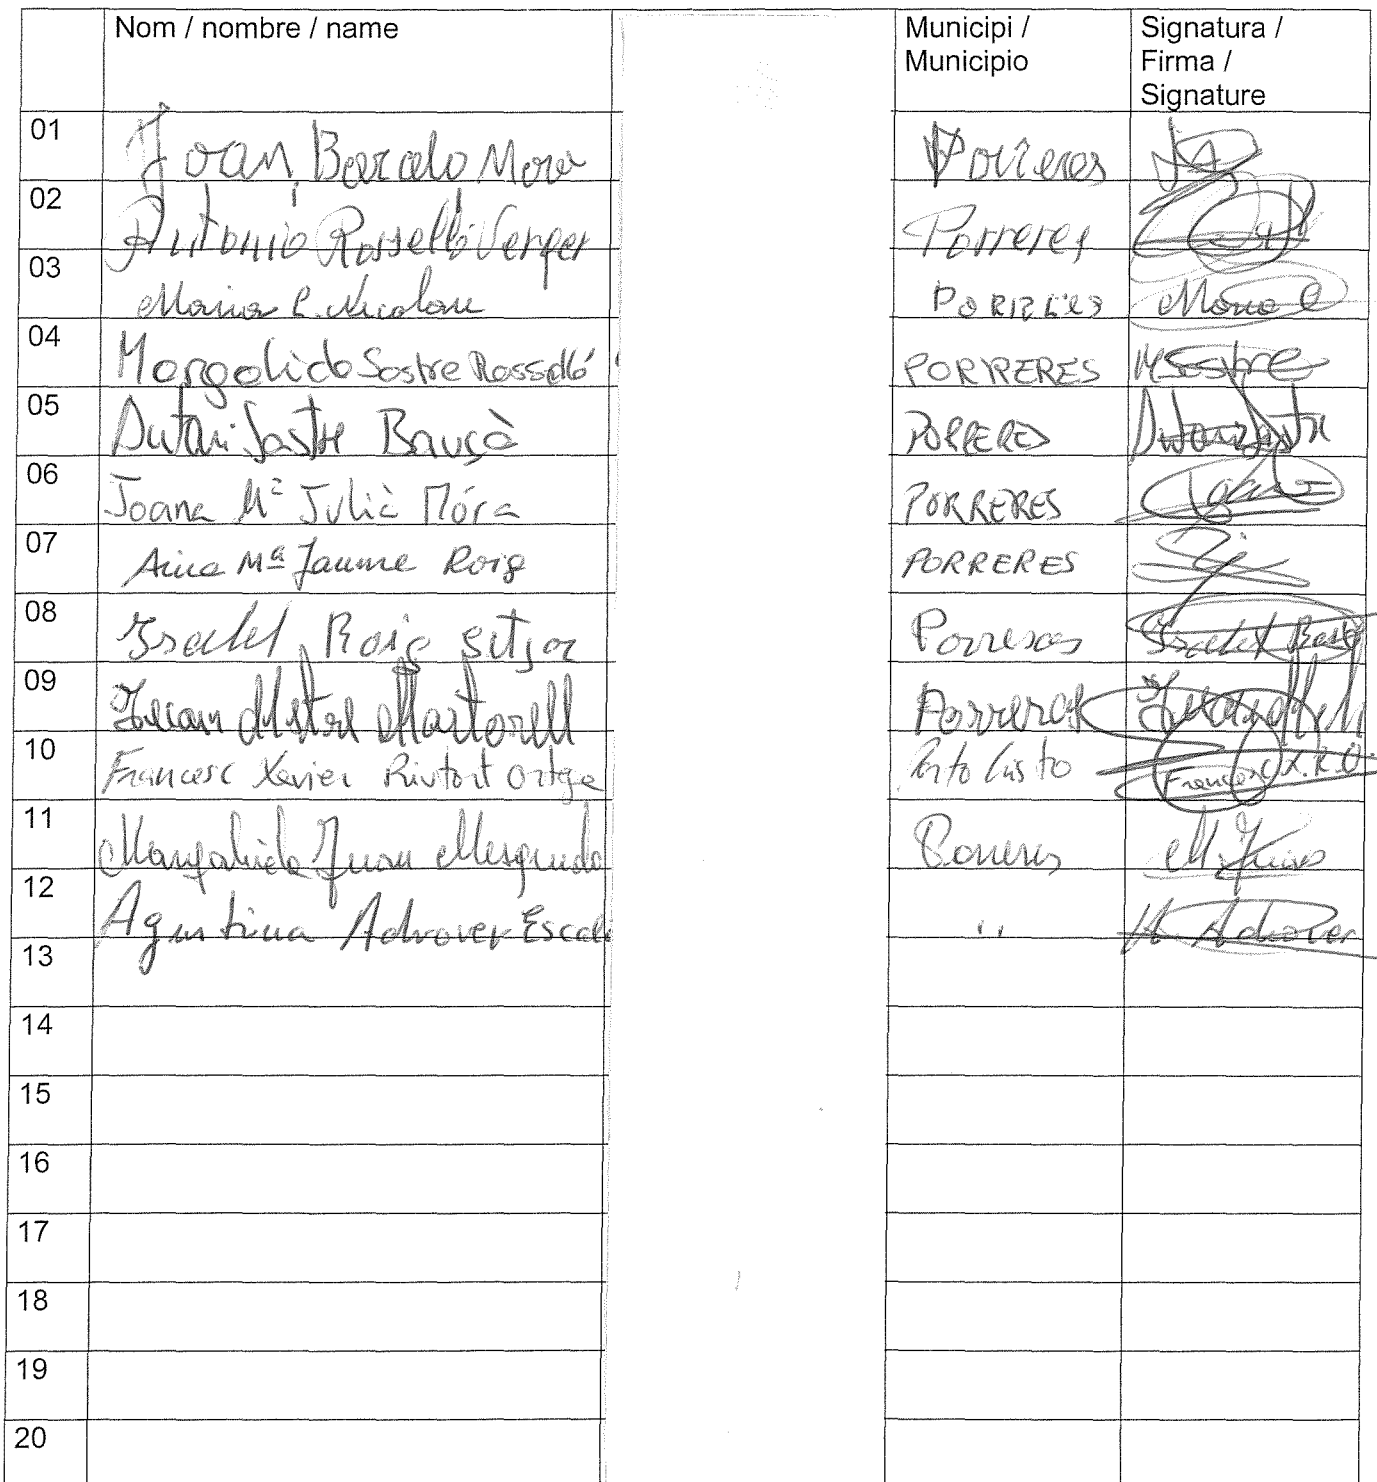 Nom / nombre / name Municipi / Signatura /
Municipio Firma /
Signature
01 Joan Barcelo Mora Porreres
02 Antonio Rosselló Verger Porreres
03 Maria C. Nicolau PORRERES Maria C
04 Margalida Sastre Rosselló PORRERES MSastre
05 Antoni Sastre Bauçà PORRERES Antoni Sastre
06 Joana Mª Julià Móra PORRERES Joana
07 Aina Mª Jaume Roig PORRERES
08 Isabel Roig Sitjar Porreres Isabel Roig
09 Juan Mestre Martorell Porreres Juan
10 Francesc Xavier Riutort Ortega Porto Cristo Francesc X.R.O.
11 Margalida Juan Porreres M. Juan
12 Agustina Adrover Escal " A Adrover
13
14
15
16
17
18
19
20